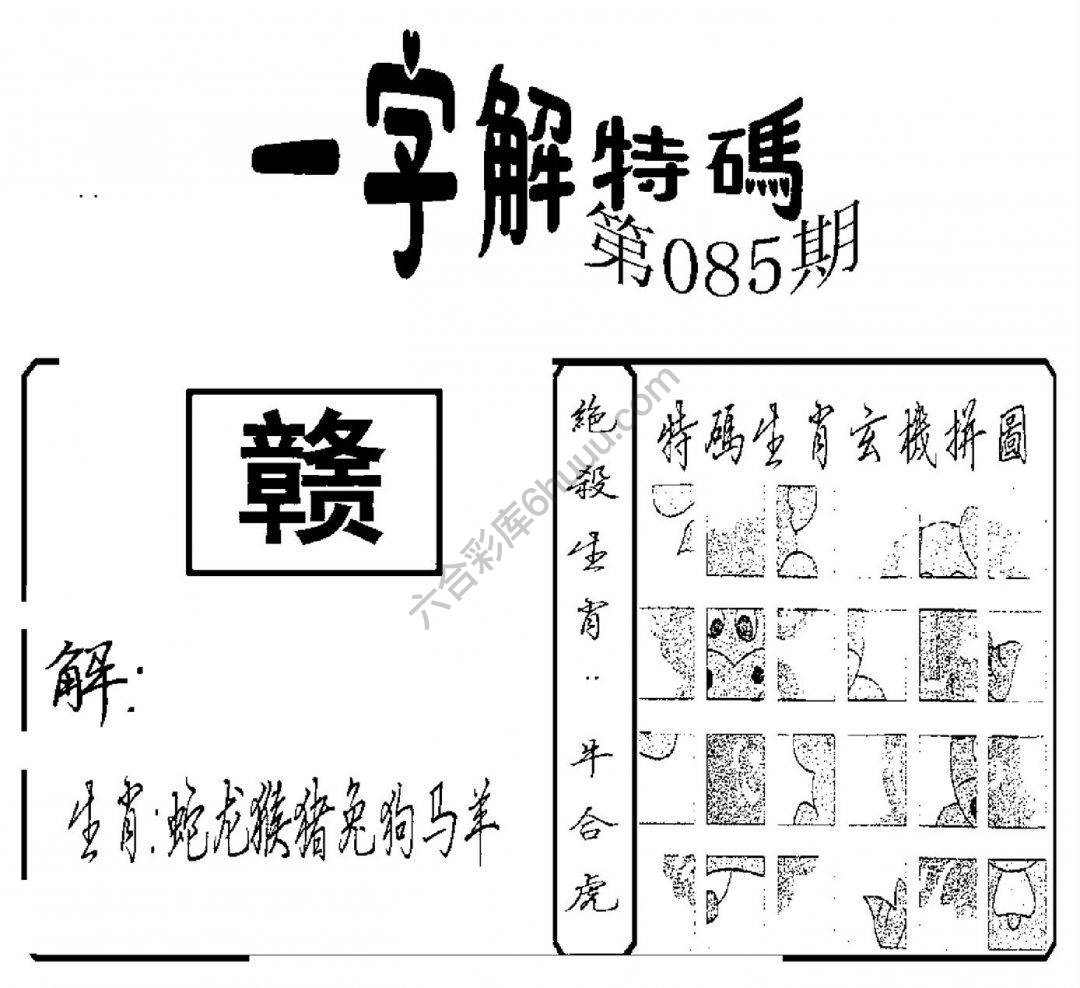 一字解特碼
第085期
赣
解:
生肖:蛇龙猴猪兔狗马羊
絶殺生肖:牛合虎
特碼生肖玄機拼圖
六合彩库6huuu.com